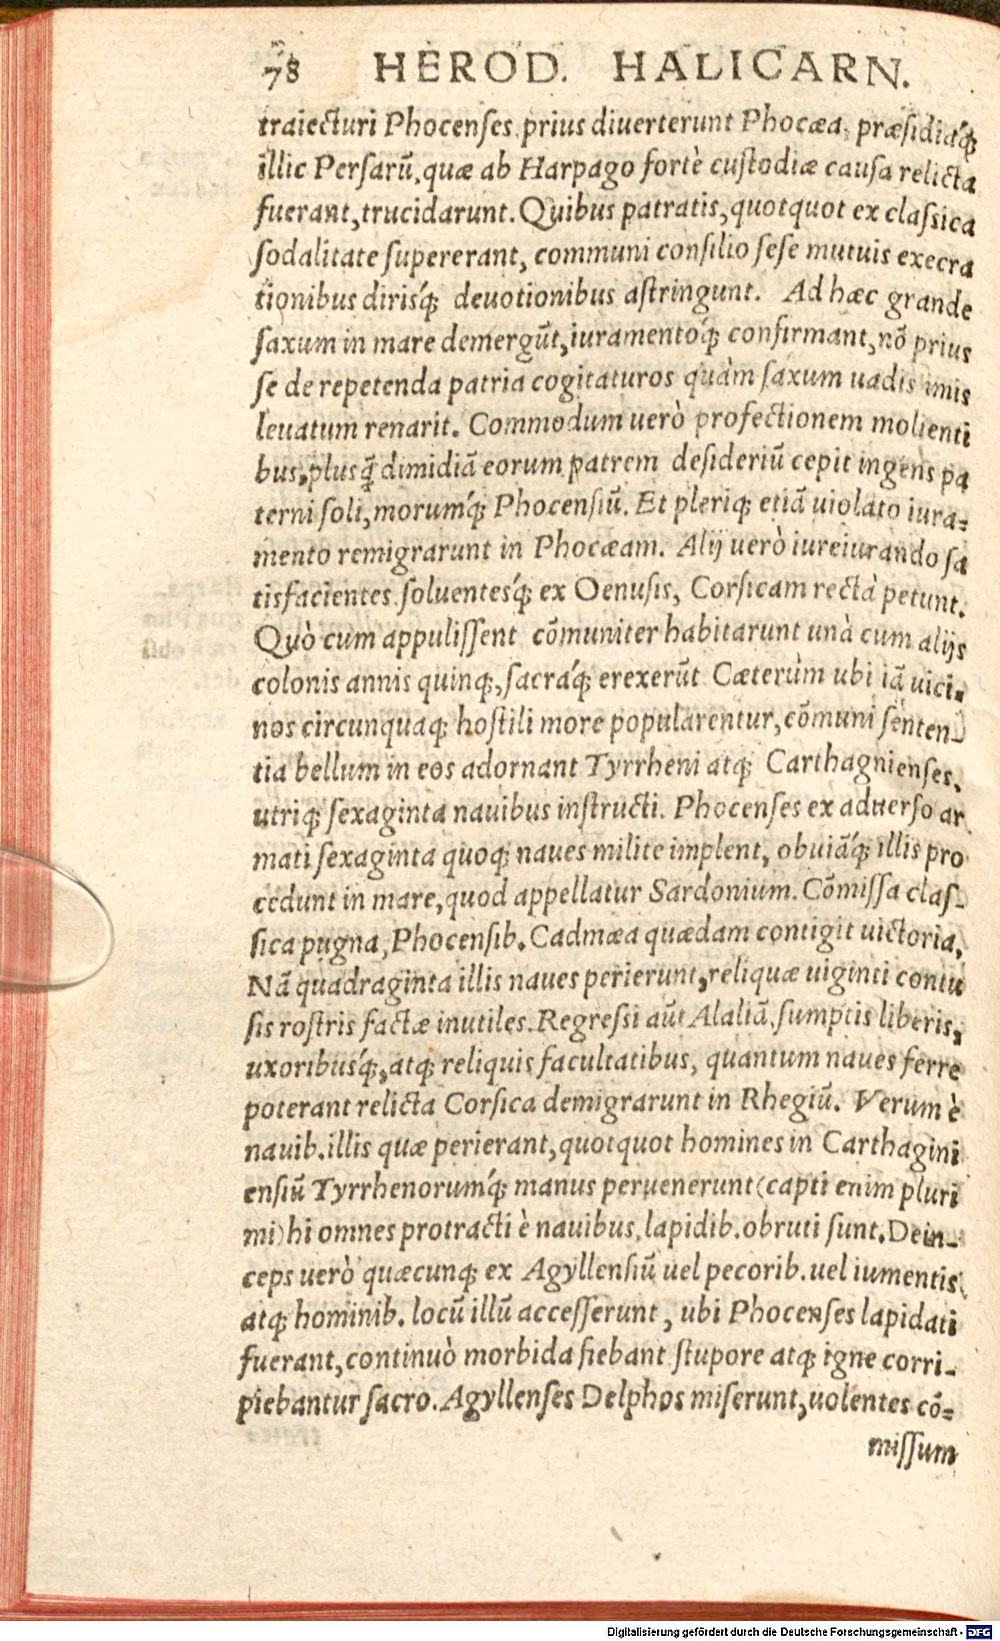 78 HEROD. HALICARN.
traiecturi Phocenses prius diuerterunt Phocæa, præsidiaq́;
illic Persarū, quæ ab Harpago fortè custodiæ causa relicta
fuerant, trucidarunt. Quibus patratis, quotquot ex classica
sodalitate supererant, communi consilio sese mutuis execra
tionibus dirisq́; deuotionibus astringunt. Ad hæc grande
saxum in mare demergūt, iuramentoq́; confirmant, nō prius
se de repetenda patria cogitaturos quàm saxum uadis imis
leuatum renarit. Commodum uerò profectionem molienti
bus, plusq̃ dimidiā eorum patrem desideriū cepit ingens pa
terni soli, morumq́; Phocensiū. Et pleriq; etiā uiolato iura-
mento remigrarunt in Phocæam. Alij uerò iureiurando sa
tisfacientes soluentesq́; ex Oenusis, Corsicam rectà petunt.
Quò cum appulissent cōmuniter habitarunt unà cum alijs
colonis annis quinq;, sacraq́; erexerūt Cæterùm ubi iā uici-
nos circunquaq; hostili more popularentur, cōmuni senten-
tia bellum in eos adornant Tyrrheni atq; Carthagnienses,
utriq; sexaginta nauibus instructi. Phocenses ex aduerso ar
mati sexaginta quoq; naues milite implent, obuiāq́; illis pro
cedunt in mare, quod appellatur Sardonium. Cōmissa clas-
sica pugna, Phocensib. Cadmæa quædam contigit uictoria,
Nā quadraginta illis naues perierunt, reliquæ uiginti contu
sis rostris factæ inutiles. Regressi aūt Alaliā, sumptis liberis,
uxoribusq́;, atq; reliquis facultatibus, quantum naues ferre
poterant relicta Corsica demigrarunt in Rhegiū. Verum è
nauib. illis quæ perierant, quotquot homines in Carthagini
ensiū Tyrrhenorumq́; manus peruenerunt (capti enim pluri
mi) hi omnes protracti è nauibus, lapidib. obruti sunt. Dein-
ceps uerò quæcunq; ex Agyllensiū uel pecorib. uel iumentis
atq; hominib. locū illū accesserunt, ubi Phocenses lapidati
fuerant, continuò morbida fiebant stupore atq; igne corri-
piebantur sacro. Agyllenses Delphos miserunt, uolentes cō-
missum
Digitalisierung gefördert durch die Deutsche Forschungsgemeinschaft - DFG